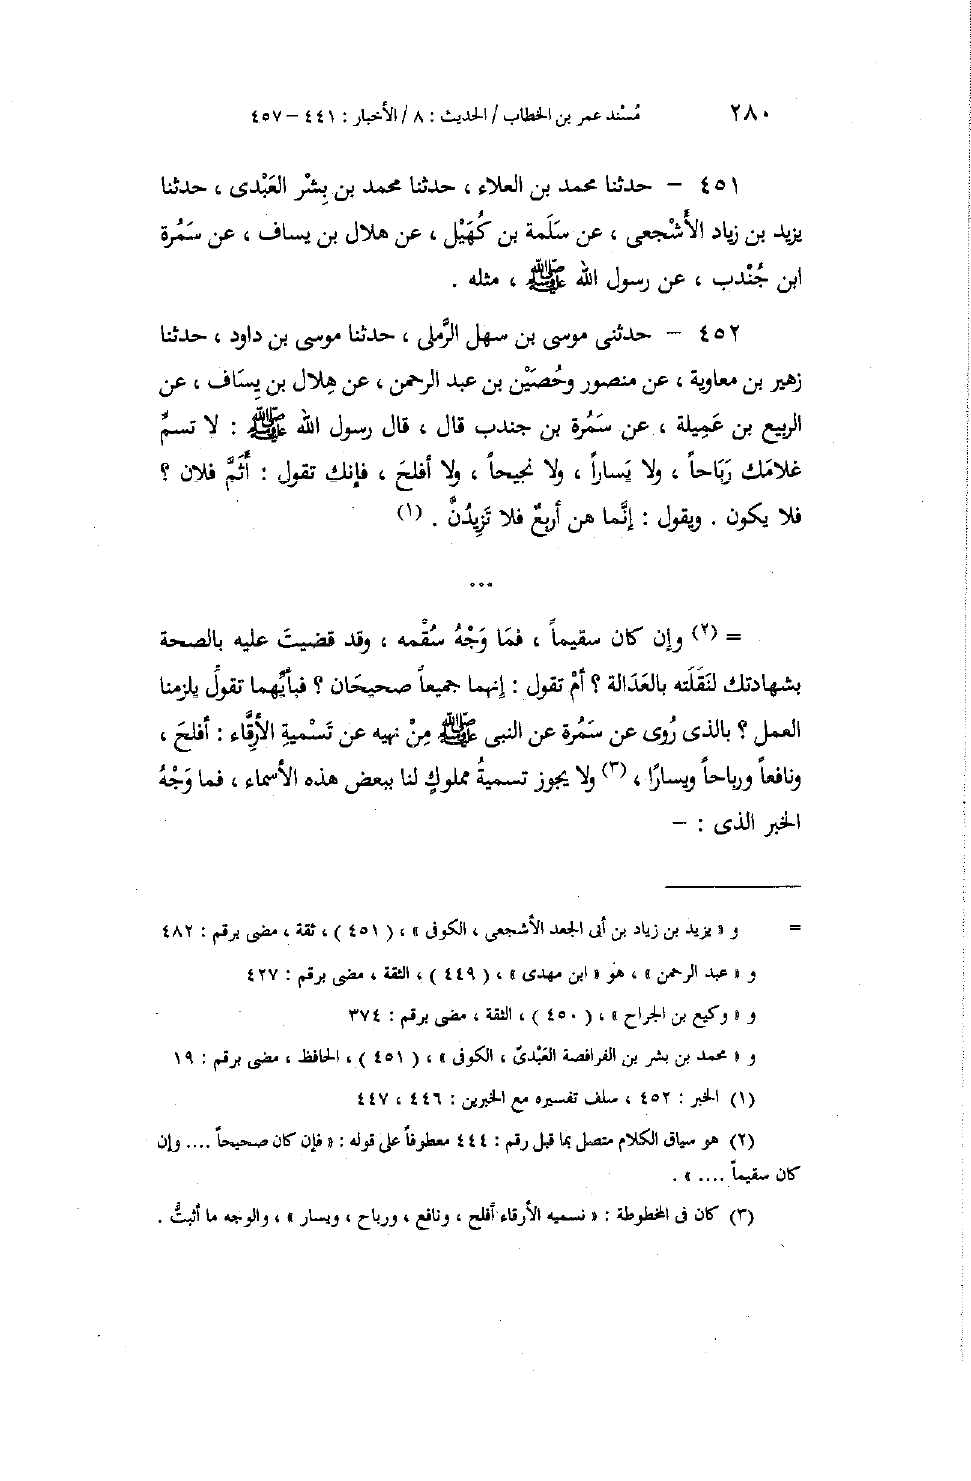 ٢٨٠ مُسْند عمر بن الخطاب / الحديث : ٨ / الأخبار : ٤٤١ – ٤٥٧
٤٥١ – حدثنا محمد بن العلاء ، حدثنا محمد بن بِشْر العَبْدى ، حدثنا
يزيد بن زياد الأَشْجعى ، عن سَلَمة بن كُهَيْل ، عن هلال بن يساف ، عن سَمُرة
ابن جُنْدب ، عن رسول الله ﷺ ، مثله .
٤٥٢ – حدثنى موسى بن سهل الرَّملى ، حدثنا موسى بن داود ، حدثنا
زهير بن معاوية ، عن منصور وحُصَيْن بن عبد الرحمن ، عن هِلال بن يِسَاف ، عن
الربيع بن عَمِيلة ، عن سَمُرة بن جندب قال ، قال رسول الله ﷺ : لا تسمِّ
غلامَك رَبَاحاً ، ولا يَساراً ، ولا نجيحاً ، ولا أفلحَ ، فإنك تقول : أَثَمَّ فلان ؟
فلا يكون . ويقول : إنَّما هن أربعٌ فلا تَزِيدُنَّ . (١)
...
= (٢) وإن كان سقيماً ، فمَا وَجْهُ سُقْمه ، وقد قضيتَ عليه بالصحة
بشهادتك لنَقَلَته بالعَدَالة ؟ أمْ تقول : إنهما جميعاً صحيحَان ؟ فبأيِّهما تقولُ يلزمنا
العمل ؟ بالذى رُوى عن سَمُرة عن النبى ﷺ مِنْ نهيه عن تَسْميةِ الأرِقَّاء : أفلحَ ،
ونافعاً ورباحاً ويسارًا ، (٣) ولا يجوز تسميةُ مملوكٍ لنا ببعض هذه الأسماء ، فما وَجْهُ
الخبر الذى : –
= و « يزيد بن زياد بن أبى الجعد الأشجعى ، الكوفى » ، ( ٤٥١ ) ، ثقة ، مضى برقم : ٤٨٢
و « عبد الرحمن » ، هو « ابن مهدى » ، ( ٤٤٩ ) ، الثقة ، مضى برقم : ٤٢٧
و « وكيع بن الجراح » ، ( ٤٥٠ ) ، الثقة ، مضى برقم : ٣٧٤
و « محمد بن بشر بن الفرافصة العَبْدىّ ، الكوفى » ، ( ٤٥١ ) ، الحافظ ، مضى برقم : ١٩
(١) الخبر : ٤٥٢ ، سلف تفسيره مع الخبرين : ٤٤٦ ، ٤٤٧
(٢) هو سياق الكلام متصل بما قبل رقم : ٤٤٤ معطوفاً على قوله : « فإن كان صحيحاً .... وإن
كان سقيماً .... » .
(٣) كان فى المخطوطة : « نسميه الأرقاء أفلح ، ونافع ، ورباح ، ويسار » ، والوجه ما أثبتُّ .